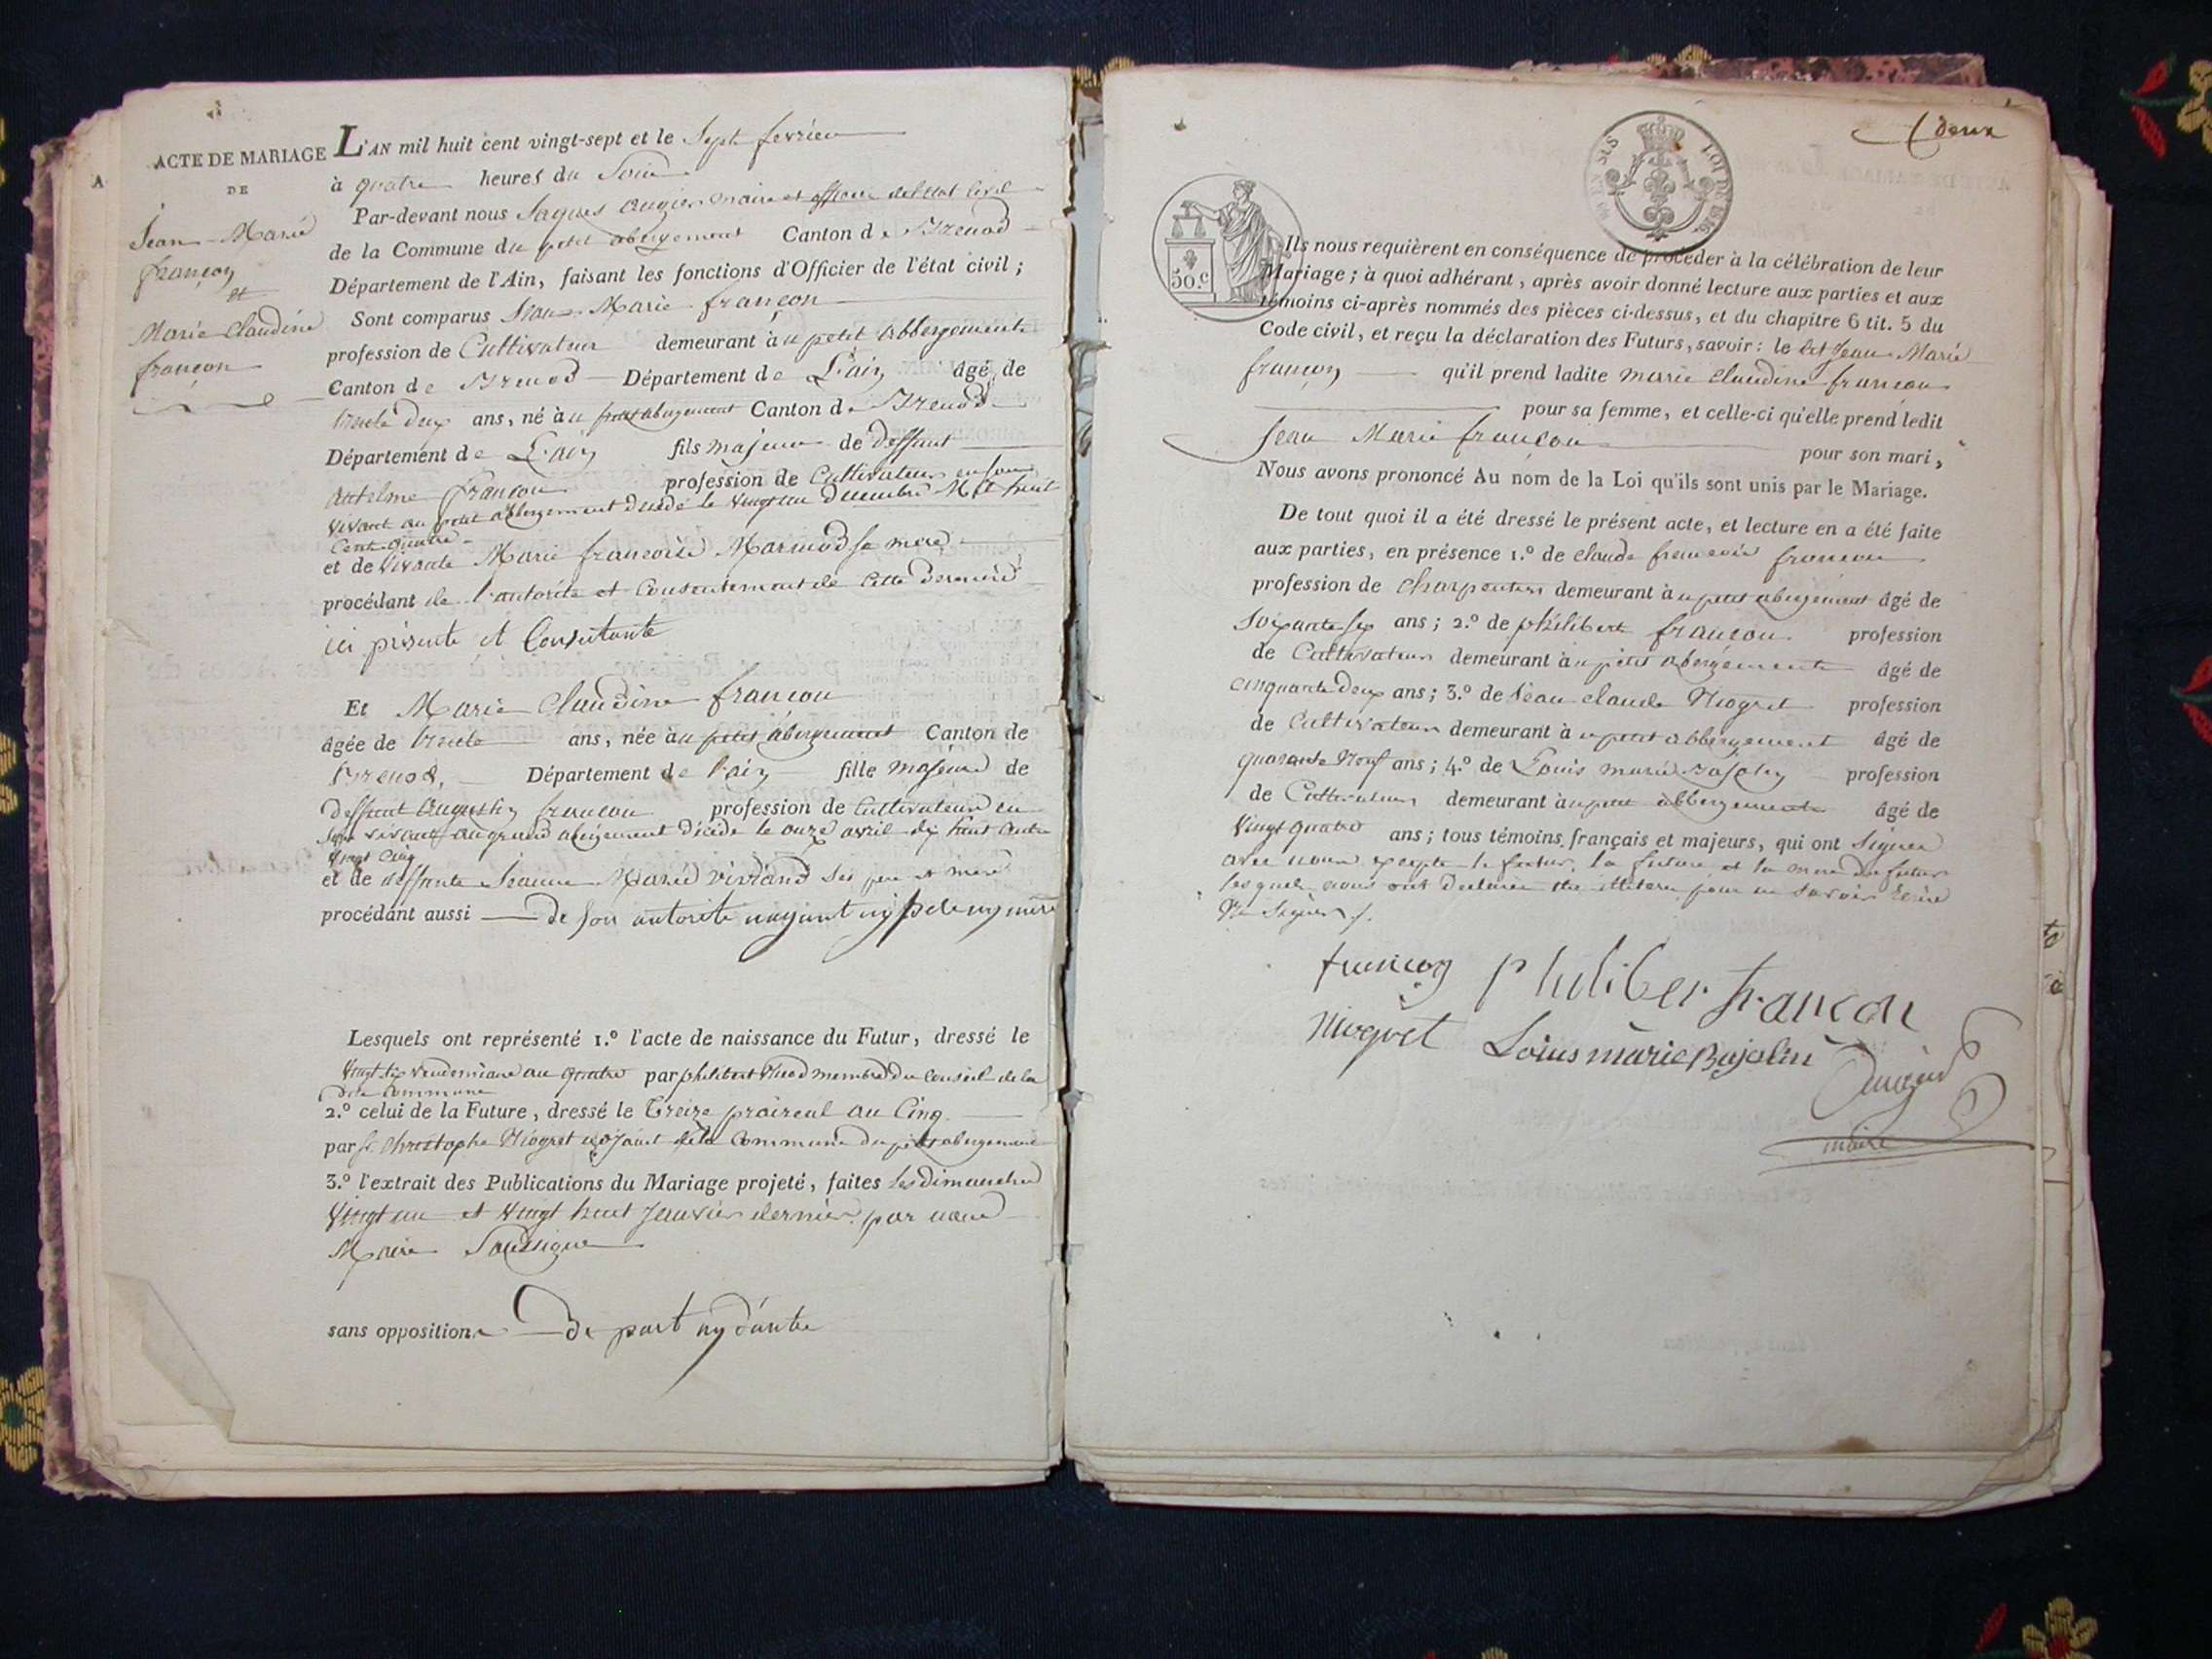 ACTE DE MARIAGE
DE
Jean Marie
françon
et
Marie Claudine
françon
L'AN mil huit cent vingt-sept et le Sept fevrier
à quatre heures du Soir
Par-devant nous Jaques augier maire et officier de l'etat Civil
de la Commune du petit abergement Canton de Brenod
Département de l'Ain, faisant les fonctions d'Officier de l'état civil ;
Sont comparus Jean Marie françon
profession de Cultivateur demeurant à u petit abbergement
Canton de Brenod Département de L'ain âgé de
trente deux ans, né à u petit abergement Canton de Brenod
Département de L'ain fils majeur de deffunt
antelme françon profession de Cultivateur en son
vivant au petit abbergement decedé le vingt un decembre Mil huit
Cent quatre
et de vivante Marie francoise Marmod sa mere
procédant de l'autorité et Consentement de cette derniere
ici présente et Consentante
Et Marie Claudine françon
âgée de trente ans, née à u petit abergement Canton de
Brenod, Département de l'ain fille majeure de
deffunt augustin françon profession de Cultivateur en
son vivant au grand abergement décédé le onze avril dix huit cent
vingt Cinq
et de deffunte Jeanne Marie viviand ses pere et mere
procédant aussi de son autorité nayant ny pere ny mere
Lesquels ont représenté 1.º l'acte de naissance du Futur, dressé le
vingt six vendemiaire an quatre par philibert membre du Conseil de la
dite Commune
2.º celui de la Future, dressé le treize praireal an Cinq
par Christophe Niogret adjoint de la Commune du petit abergement
3.º l'extrait des Publications du Mariage projeté, faites les dimanches
vingt un et vingt huit Janvier dernier par nous
Maire Soussigné
sans opposition de part ny d'autre
deux
50.C
Ils nous requièrent en conséquence de procéder à la célébration de leur
Mariage ; à quoi adhérant, après avoir donné lecture aux parties et aux
témoins ci-après nommés des pièces ci-dessus, et du chapitre 6 tit. 5 du
Code civil, et reçu la déclaration des Futurs, savoir : le dit Jean Marie
françon qu'il prend ladite marie claudine françon
pour sa femme, et celle-ci qu'elle prend ledit
Jean Marie françon
pour son mari,
Nous avons prononcé Au nom de la Loi qu'ils sont unis par le Mariage.
De tout quoi il a été dressé le présent acte, et lecture en a été faite
aux parties, en présence 1.º de claude francois françon
profession de charpentier demeurant à u petit abergement âgé de
Soixante six ans ; 2.º de philibert françon profession
de Cultivateur demeurant à u petit abergement âgé de
cinquante deux ans ; 3.º de Jean claude Niogret profession
de Cultivateur demeurant à u petit abbergement âgé de
quarante Neuf ans ; 4.º de Louis marie Bajolin profession
de Cultivateur demeurant à u petit abbergement âgé de
vingt quatre ans ; tous témoins français et majeurs, qui ont Signés
avec nous excepte le futur, la future et la mere du futur
lesquels nous ont declaré etre illiteré pour ne savoir écrire
Ny Signer
françon Philiber françon
Niogret Loius marie Bajolin
augier
maire